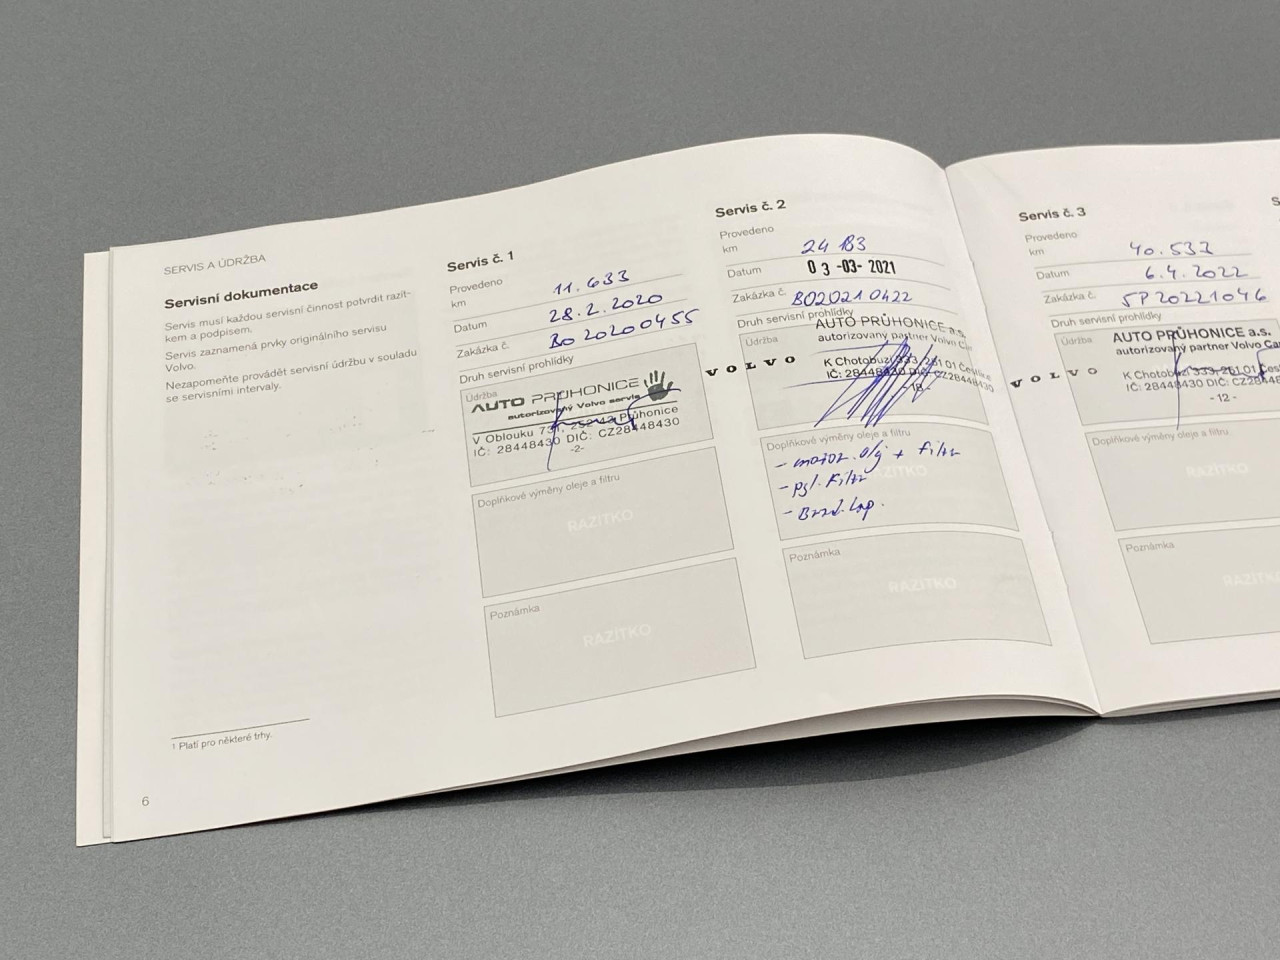 SERVIS A ÚDRŽBA
Servisní dokumentace
Servis musí každou servisní činnost potvrdit razít-
kem a podpisem.
Servis zaznamená prvky originálního servisu
Volvo.
Nezapomeňte provádět servisní údržbu v souladu
se servisními intervaly.
1 Platí pro některé trhy.
6
Servis č. 1
Provedeno
km 11.633
Datum 28.2.2020
Zakázka č. BO20200455
Druh servisní prohlídky
Údržba
AUTO PRŮHONICE
autorizovaný Volvo servis
V Oblouku 731, 252 43 Průhonice
IČ: 28448430 DIČ: CZ28448430
-2-
Doplňkové výměny oleje a filtru
RAZÍTKO
Poznámka
RAZÍTKO
Servis č. 2
Provedeno
km 24 183
Datum 03-03-2021
Zakázka č. BO20210422
Druh servisní prohlídky
Údržba
AUTO PRŮHONICE a.s.
autorizovaný partner Volvo Car
VOLVO
K Chotobuzi 333, 251 01
IČ: 28448430 DIČ: CZ28448430
-18-
Doplňkové výměny oleje a filtru
- motor. olej + filtr
- pyl. filtr
- Brzd. kap.
RAZÍTKO
Poznámka
RAZÍTKO
Servis č. 3
Provedeno
km 40.533
Datum 6.4.2022
Zakázka č. SP20221046
Druh servisní prohlídky
Údržba
AUTO PRŮHONICE a.s.
autorizovaný partner Volvo Car
VOLVO
K Chotobuzi 333, 251 01
IČ: 28448430 DIČ: CZ28448
-12-
Doplňkové výměny oleje a filtru
RAZÍTKO
Poznámka
RAZÍTK
S